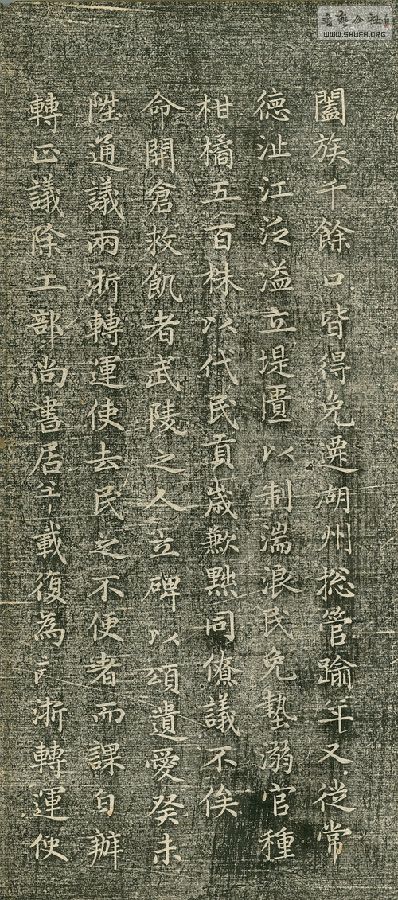 闔族千餘口皆得免遷湖州捴管踰年又從常
德沚江泛溢立堤圕以制湍浪民免墊溺官種
柑橘五百株以代民貢歲歉點同僚議不俟
命開倉救飢者武陵之人立碑以頌遺愛癸未
陞通議兩浙轉運使去民之不便者而課自辦
轉正議除工部尚書居載復為兩浙轉運使
WWW.SHUFA.ORG